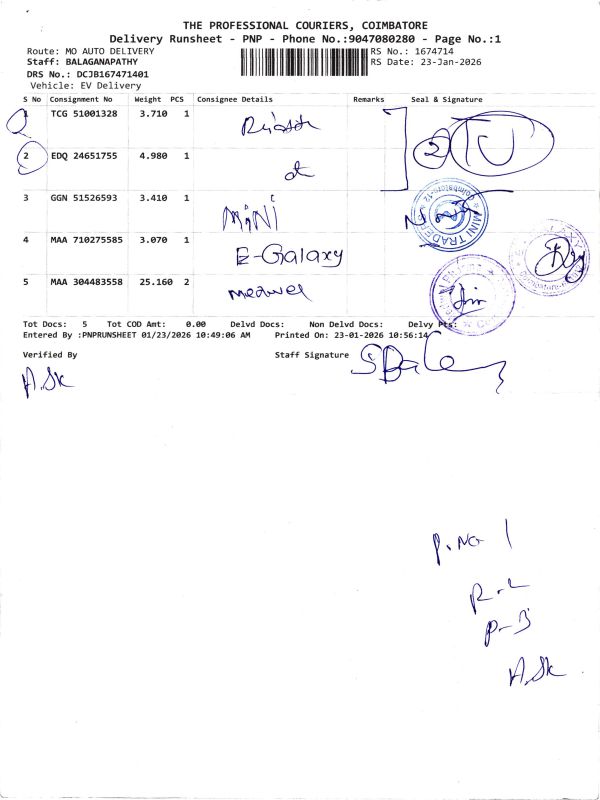 THE PROFESSIONAL COURIERS, COIMBATORE
Delivery Runsheet - PNP - Phone No.:9047080280 - Page No.:1
Route: MO AUTO DELIVERY RS No.: 1674714
Staff: BALAGANAPATHY RS Date: 23-Jan-2026
DRS No.: DCJB167471401
Vehicle: EV Delivery
S No Consignment No Weight PCS Consignee Details Remarks Seal & Signature
1 TCG 51001328 3.710 1
2 EDQ 24651755 4.980 1 2
3 GGN 51526593 3.410 1 MiNI
MINI TRADERS Coimbatore-12
4 MAA 710275585 3.070 1 E-Galaxy
5 MAA 304483558 25.160 2
Tot Docs: 5 Tot COD Amt: 0.00 Delvd Docs: Non Delvd Docs: Delvy Pts:
Entered By :PNPRUNSHEET 01/23/2026 10:49:06 AM Printed On: 23-01-2026 10:56:14
Verified By Staff Signature
A.SK
P.No 1
P-3
A.SK